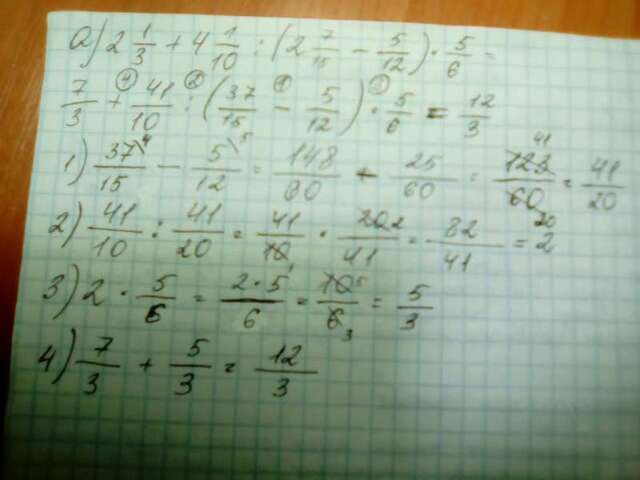 а) 2 1/3 + 4 1/10 : (2 7/15 - 5/12) · 5/6 =
7/3 +④ 41/10 :② (37/15 -① 5/12) ·③ 5/6 = 12/3
1) 37\4/15 - 5\5/12 = 148/60 - 25/60 = 123 41/60 20 = 41/20
2) 41/10 : 41/20 = 41/10 · 20 2/41 = 82/41 = 2
3) 2 · 5/6 = 2·5/6 = 10 5/6 3 = 5/3
4) 7/3 + 5/3 = 12/3